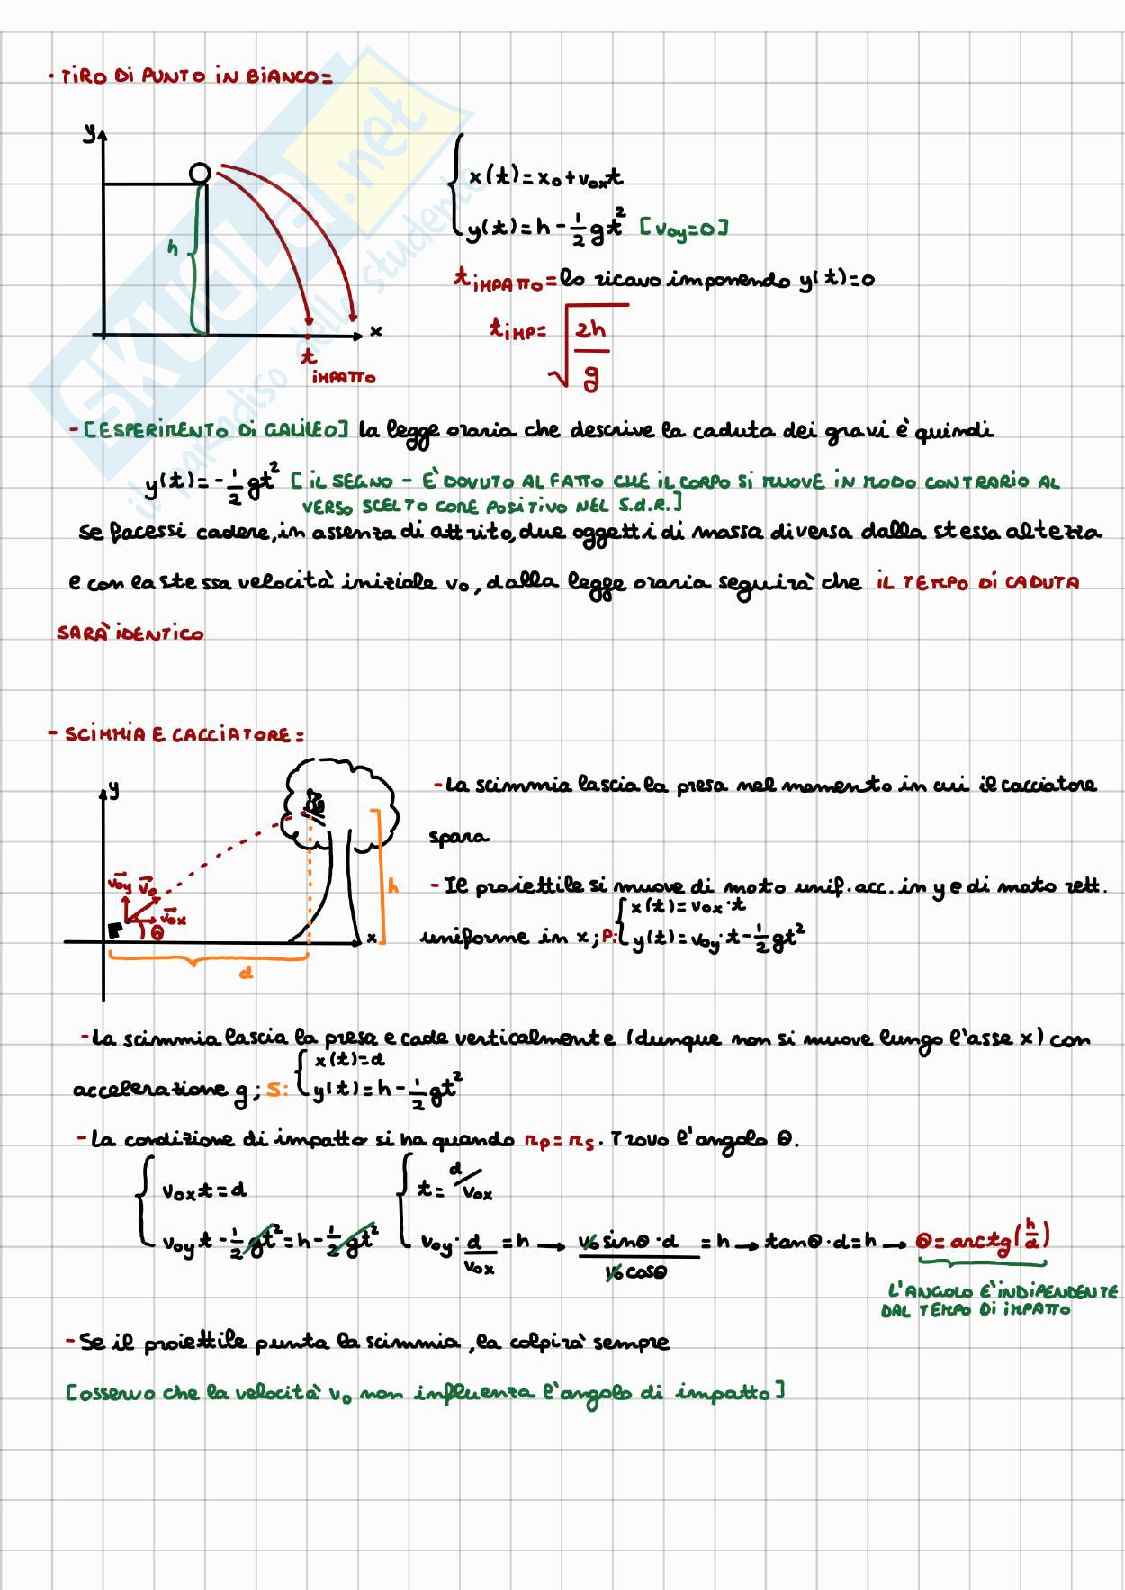 - TIRO DI PUNTO IN BIANCO=
y
x(t)=x₀+v₀ₓt
y(t)=h-½gt² [v₀y=0]
h
t IMPATTO = lo ricavo imponendo y(t)=0
x
t IMP = √(2h/g)
t IMPATTO
SKUOLA.net
il paradiso dello studente
- [ESPERIMENTO DI GALILEO] la legge oraria che descrive la caduta dei gravi è quindi
y(t)=-½gt² [IL SEGNO - È DOVUTO AL FATTO CHE IL CORPO SI MUOVE IN MODO CONTRARIO AL
VERSO SCELTO COME POSITIVO NEL S.d.R.]
Se facessi cadere, in assenza di attrito, due oggetti di massa diversa dalla stessa altezza
e con la stessa velocità iniziale v₀, dalla legge oraria seguirà che IL TEMPO DI CADUTA
SARÀ IDENTICO
- SCIMMIA E CACCIATORE=
y
- La scimmia lascia la presa nel momento in cui il cacciatore
spara
v₀y v₀ v₀ₓ θ
h
x
d
- Il proiettile si muove di moto unif. acc. in y e di moto rett.
uniforme in x; P: { x(t)=v₀ₓ·t
y(t)=v₀y·t-½gt²
- La scimmia lascia la presa e cade verticalmente (dunque non si muove lungo l'asse x) con
accelerazione g; S: { x(t)=d
y(t)=h-½gt²
- La condizione di impatto si ha quando rₚ=rₛ. Trovo l'angolo θ.
v₀ₓt=d t=d/v₀ₓ
v₀y t-½gt²=h-½gt² v₀y·d/v₀ₓ=h → v₀sinθ·d/v₀cosθ=h → tanθ·d=h → θ=arctg(h/d)
L'ANGOLO È INDIPENDENTE
DAL TEMPO DI IMPATTO
- Se il proiettile punta la scimmia, la colpirà sempre
[osservo che la velocità v₀ non influenza l'angolo di impatto]